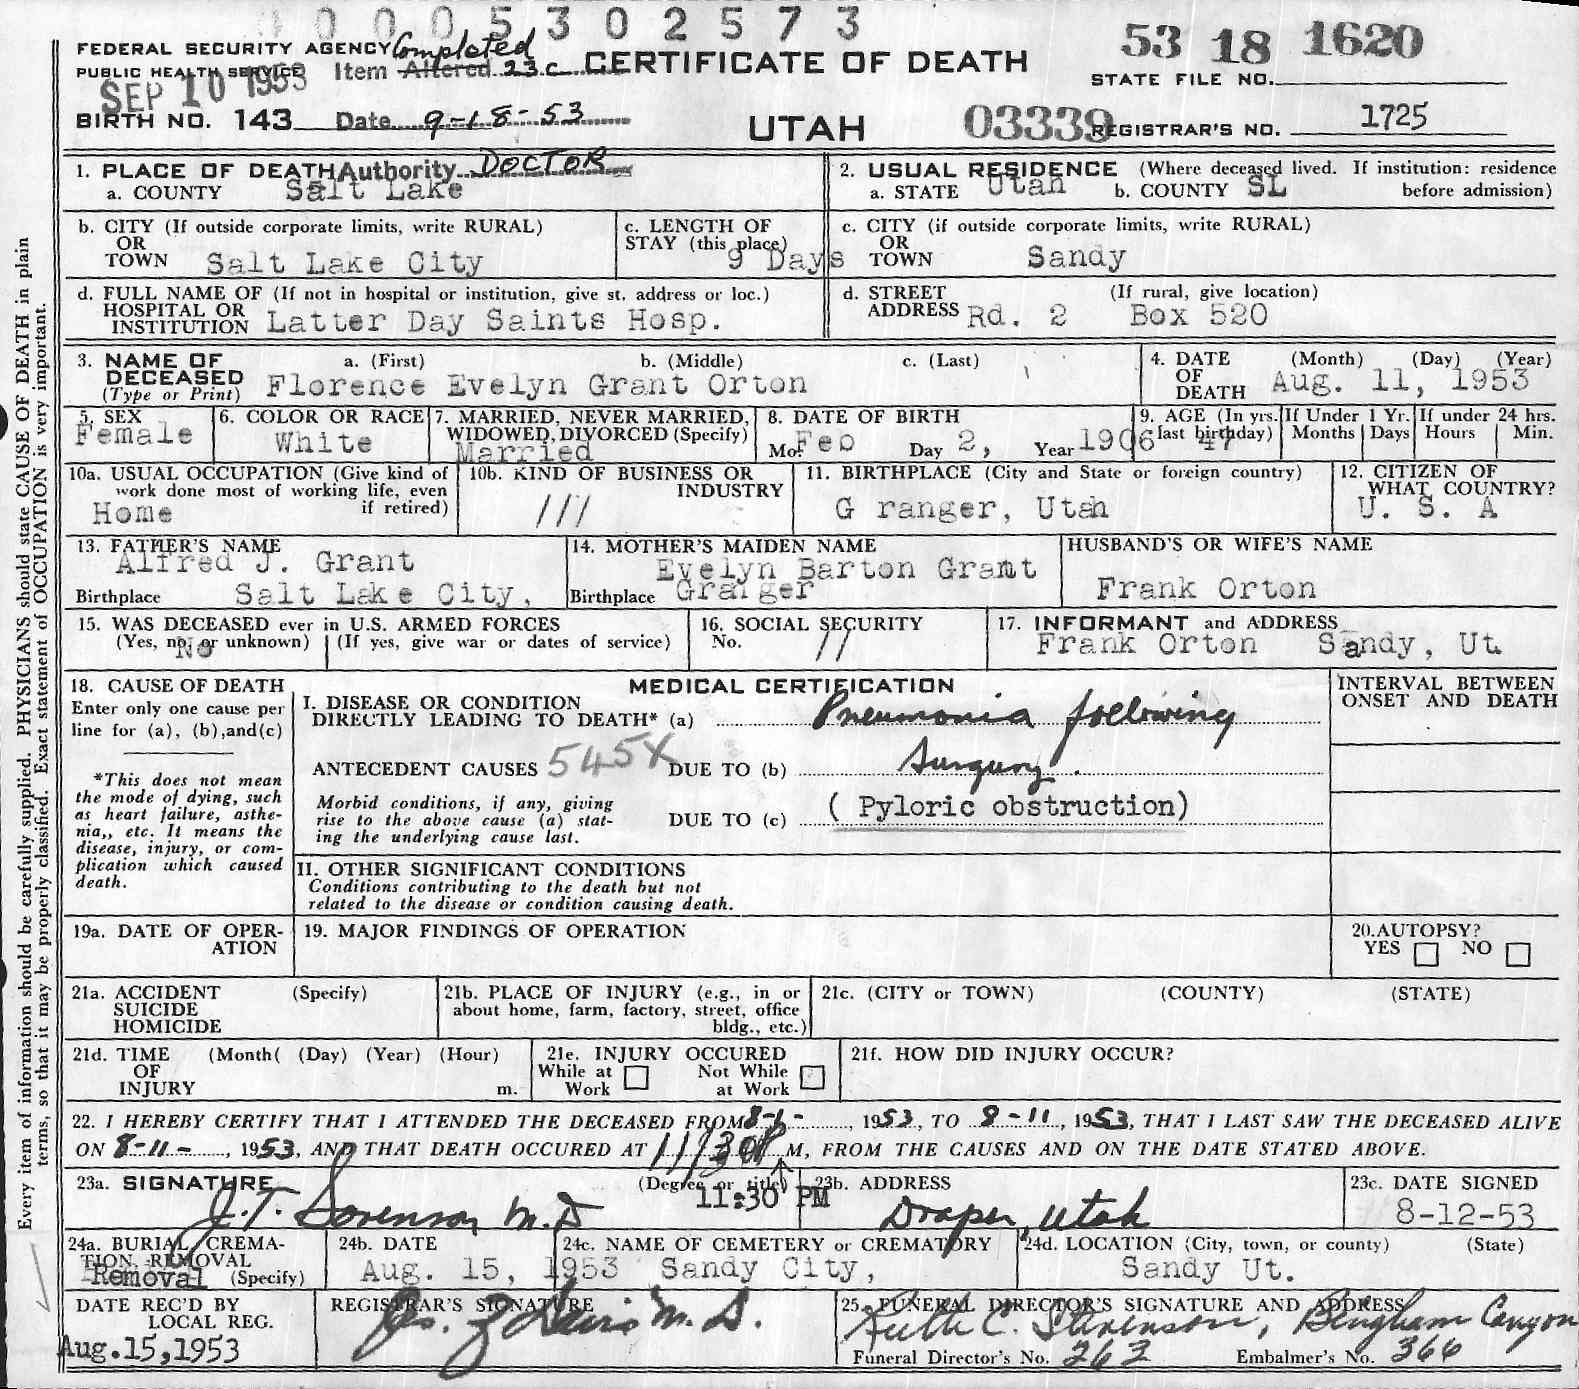 0 0 0 5 3 0 2 5 7 3
53 18 1620
FEDERAL SECURITY AGENCY Completed
PUBLIC HEALTH SERVICE Item Altered 23c CERTIFICATE OF DEATH
STATE FILE NO.
SEP 10 1953
BIRTH NO. 143 Date 9-18-53
UTAH 03339 REGISTRAR'S NO. 1725
1. PLACE OF DEATH Authority DOCTOR
a. COUNTY Salt Lake
2. USUAL RESIDENCE (Where deceased lived. If institution: residence
a. STATE Utah b. COUNTY SL before admission)
b. CITY (If outside corporate limits, write RURAL)
OR
TOWN Salt Lake City
c. LENGTH OF
STAY (this place)
9 Days
c. CITY (if outside corporate limits, write RURAL)
OR
TOWN Sandy
d. FULL NAME OF (If not in hospital or institution, give st. address or loc.)
HOSPITAL OR
INSTITUTION Latter Day Saints Hosp.
d. STREET (If rural, give location)
ADDRESS Rd. 2 Box 520
3. NAME OF a. (First) b. (Middle) c. (Last)
DECEASED Florence Evelyn Grant Orton
(Type or Print)
4. DATE (Month) (Day) (Year)
OF
DEATH Aug. 11, 1953
5. SEX
Female
6. COLOR OR RACE
White
7. MARRIED, NEVER MARRIED,
WIDOWED, DIVORCED (Specify)
Married
8. DATE OF BIRTH
Mo. Feb Day 2, Year 1906
9. AGE (In yrs.
last birthday) 47
If Under 1 Yr.
Months Days
If under 24 hrs.
Hours Min.
10a. USUAL OCCUPATION (Give kind of
work done most of working life, even
if retired)
Home
10b. KIND OF BUSINESS OR
INDUSTRY
///
11. BIRTHPLACE (City and State or foreign country)
G ranger, Utah
12. CITIZEN OF
WHAT COUNTRY?
U. S. A
13. FATHER'S NAME
Alfred J. Grant
Birthplace Salt Lake City,
14. MOTHER'S MAIDEN NAME
Evelyn Barton Grant
Birthplace Granger
HUSBAND'S OR WIFE'S NAME
Frank Orton
15. WAS DECEASED ever in U.S. ARMED FORCES
(Yes, no, or unknown) (If yes, give war or dates of service)
No
16. SOCIAL SECURITY
No. //
17. INFORMANT and ADDRESS
Frank Orton Sandy, Ut.
18. CAUSE OF DEATH
Enter only one cause per
line for (a), (b),and(c)
*This does not mean
the mode of dying, such
as heart failure, asthe-
nia,, etc. It means the
disease, injury, or com-
plication which caused
death.
MEDICAL CERTIFICATION
I. DISEASE OR CONDITION
DIRECTLY LEADING TO DEATH* (a) Pneumonia following
ANTECEDENT CAUSES 545X DUE TO (b) Surgury.
Morbid conditions, if any, giving
rise to the above cause (a) stat-
ing the underlying cause last.
DUE TO (c) ( Pyloric obstruction)
INTERVAL BETWEEN
ONSET AND DEATH
II. OTHER SIGNIFICANT CONDITIONS
Conditions contributing to the death but not
related to the disease or condition causing death.
19a. DATE OF OPER-
ATION
19. MAJOR FINDINGS OF OPERATION
20. AUTOPSY?
YES NO
21a. ACCIDENT (Specify)
SUICIDE
HOMICIDE
21b. PLACE OF INJURY (e.g., in or
about home, farm, factory, street, office
bldg., etc.)
21c. (CITY or TOWN) (COUNTY) (STATE)
21d. TIME (Month( (Day) (Year) (Hour)
OF
INJURY m.
21e. INJURY OCCURED
While at Not While
Work at Work
21f. HOW DID INJURY OCCUR?
22. I HEREBY CERTIFY THAT I ATTENDED THE DECEASED FROM 8-1-, 1953, TO 8-11, 1953, THAT I LAST SAW THE DECEASED ALIVE
ON 8-11-, 1953, AND THAT DEATH OCCURED AT 11/30 P M, FROM THE CAUSES AND ON THE DATE STATED ABOVE.
23a. SIGNATURE (Degree or title)
J.T. Sorenson M.D
11:30 PM
23b. ADDRESS
Draper, Utah
23c. DATE SIGNED
8-12-53
24a. BURIAL, CREMA-
TION, REMOVAL
Removal (Specify)
24b. DATE
Aug. 15, 1953
24c. NAME OF CEMETERY or CREMATORY
Sandy City,
24d. LOCATION (City, town, or county) (State)
Sandy Ut.
DATE REC'D BY
LOCAL REG.
Aug.15,1953
REGISTRAR'S SIGNATURE
M.D.
25. FUNERAL DIRECTOR'S SIGNATURE AND ADDRESS
Ruth C. Stevenson, Bingham Canyon
Funeral Director's No. 262 Embalmer's No. 366
Every item of information should be carefully supplied. PHYSICIANS should state CAUSE OF DEATH in plain
terms, so that it may be properly classified. Exact statement of OCCUPATION is very important.